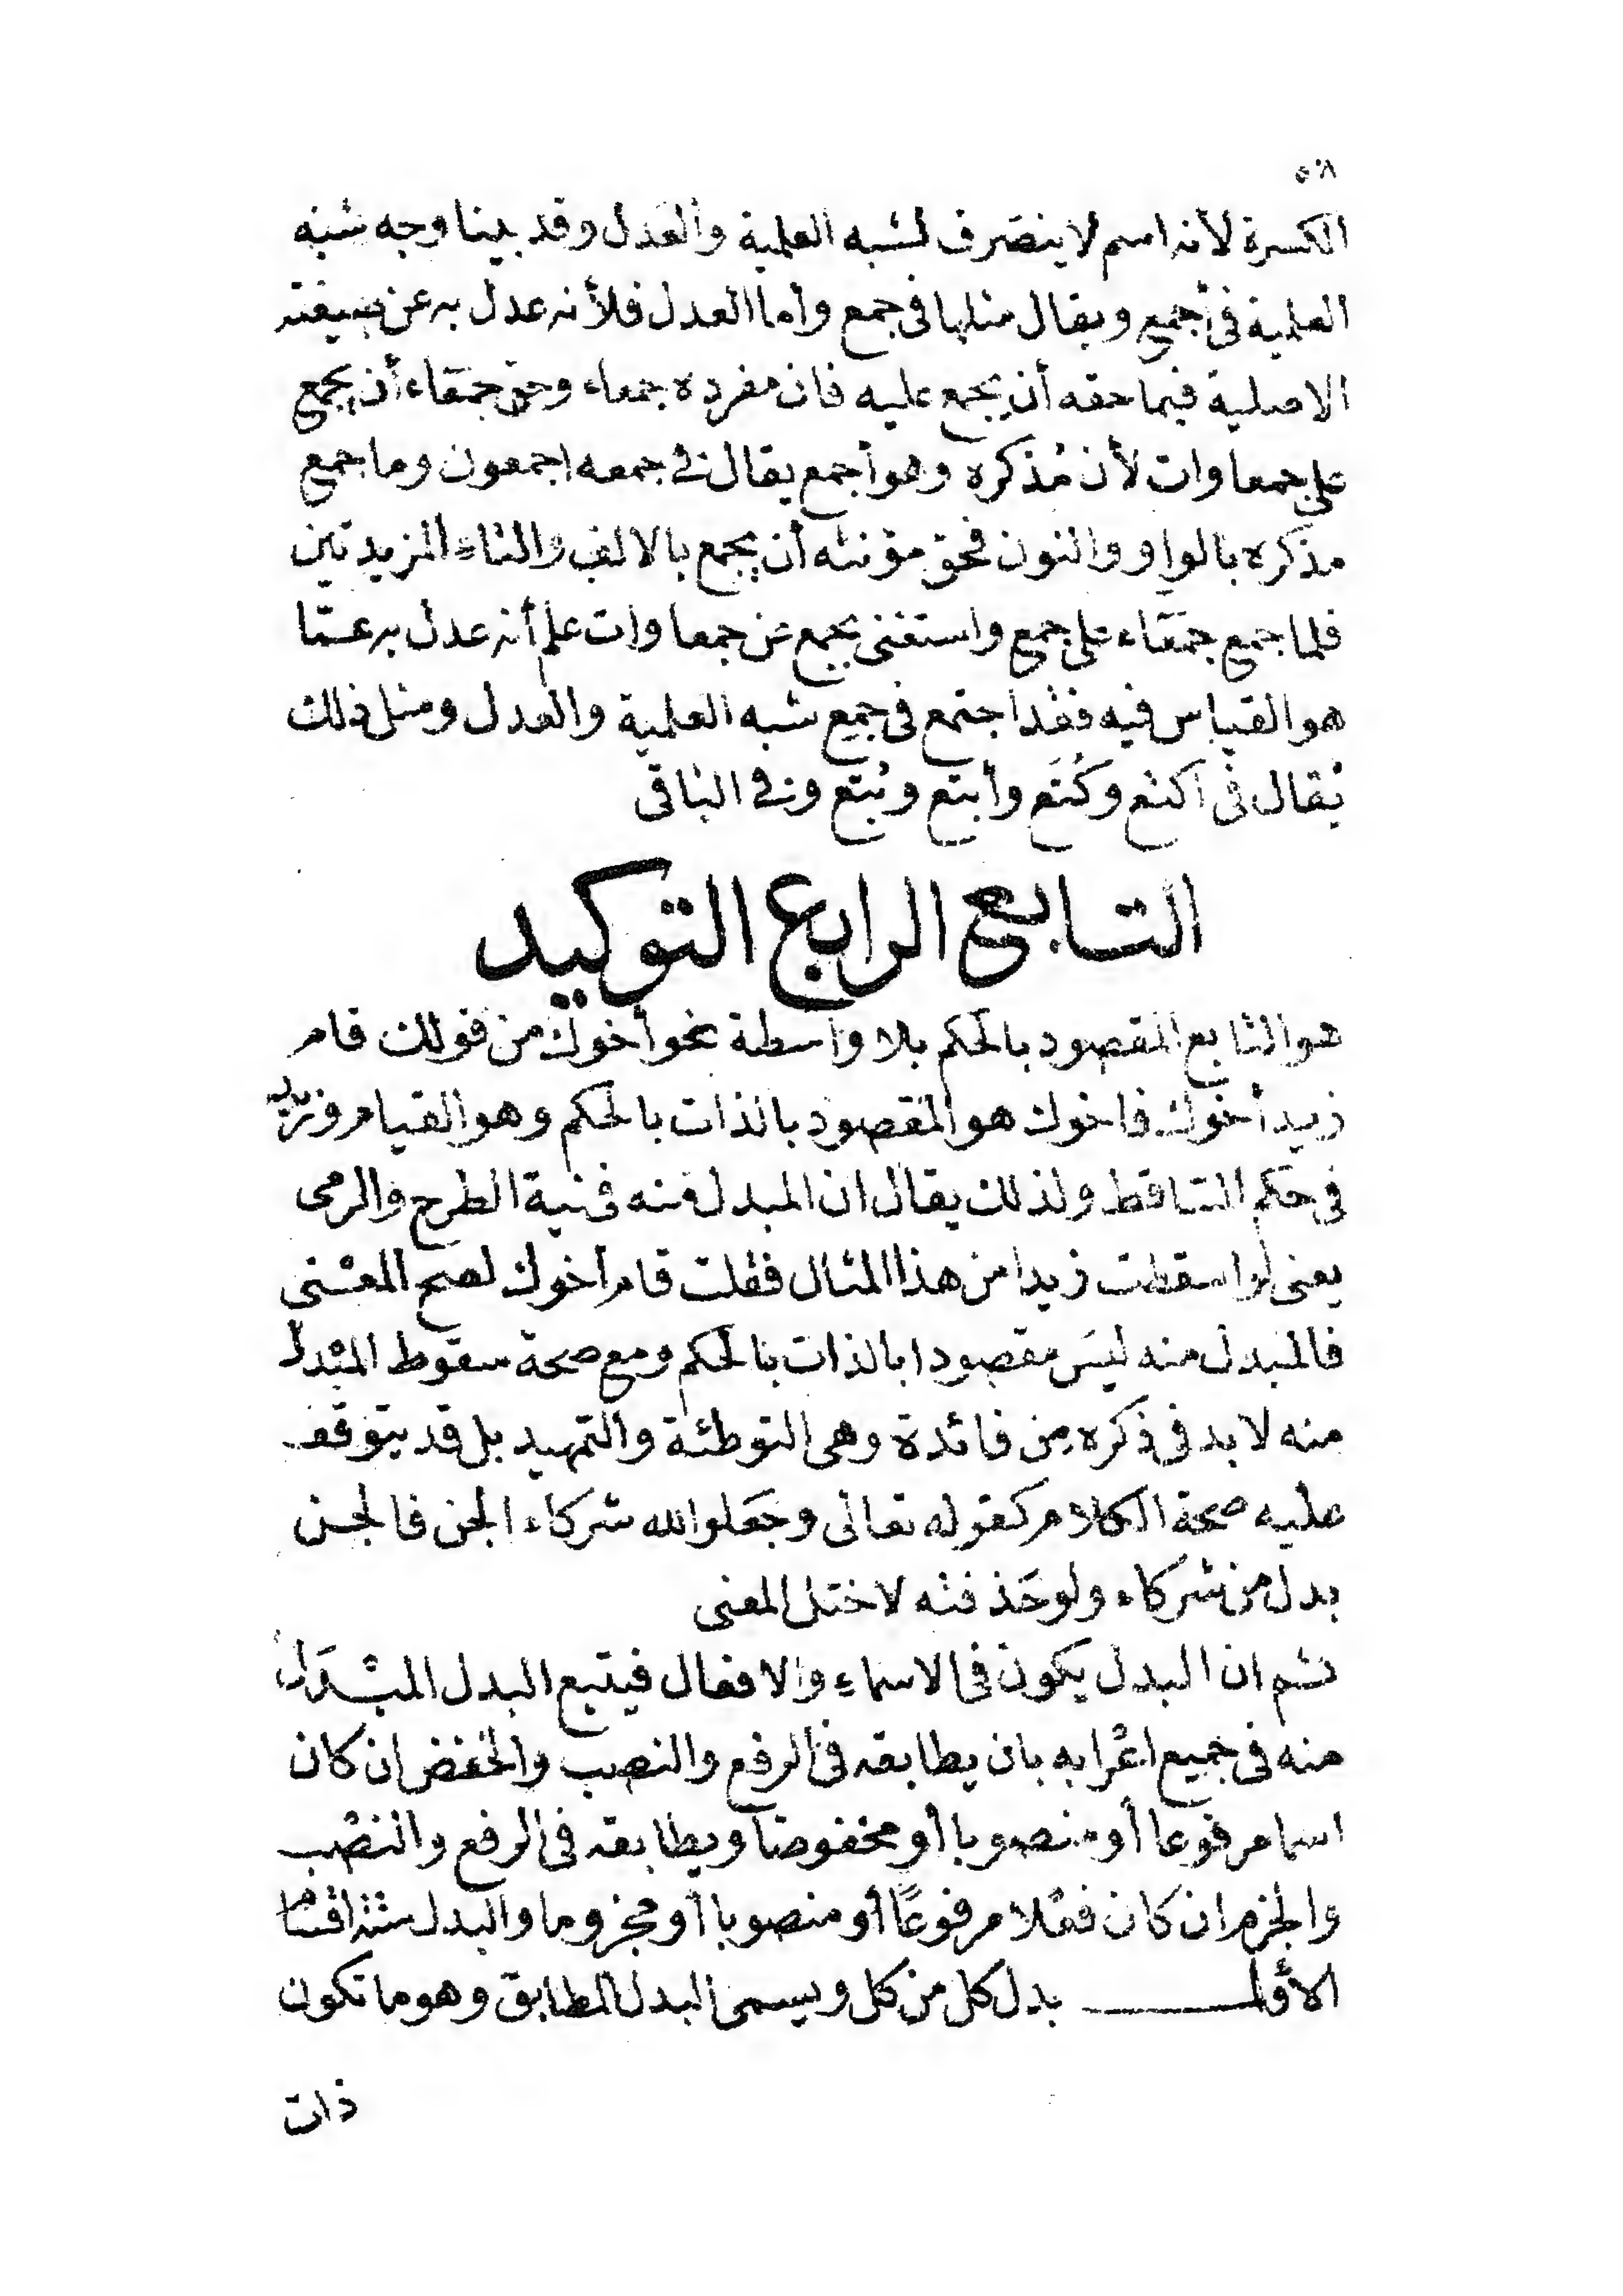 ٥٠٨
الكسرة لأنه اسم لا ينصرف لشبه العلمية والعدل وقد بينا وجه شبه
العلمية فى أجمع ويقال مثلها فى جمع وأما العدل فلأنه عدل به عن صيغته
الاصلية فيما حقه أن يجمع عليه فان مفرده جمعاء وحق جمعاء أن يجمع
على جمعاوات لأن مذكره وهو أجمع يقال فى جمعه اجمعون وما جمع
مذكره بالواو والنون فحق مؤنثه أن يجمع بالالف والتاء المزيدتين
فلما جمع جمعاء على جمع واستغنى بجمع عن جمعاوات علم أنه عدل به عمّا
هو القياس فيه فقد اجتمع فى جمع شبه العلمية والعدل ومثل ذلك
يُقال فى أكتع وكُتَع وأبتع وبُتع وفى الباقى
التابع الرابع التوكيد
هو التابع المقصود بالحكم بلا واسطة نحو أخوك من قولك قام
زيد أخوك فاخوك هو المقصود بالذات بالحكم وهو القيام وزيد
فى حكم الساقط ولذلك يقال ان المبدل منه فى نية الطرح والرمى
يعنى لو اسقطت زيدا من هذا المثال فقلت قام أخوك لصح المعنى
فالمبدل منه ليس مقصودا بالذات بالحكم ومع صحة سقوط المبدل
منه لا بد فى ذكره من فائدة وهى التوطئة والتمهيد بل قد يتوقف
عليه صحة الكلام كقوله تعالى وجعلوا لله شركاء الجن فالجن
بدل من شركاء ولو حذفته لاختل المعنى
ثم ان البدل يكون فى الاسماء والافعال فيتبع البدل المبدل
منه فى جميع اعرابه بان يطابقه فى الرفع والنصب والخفض ان كان
اسما مرفوعا أو منصوبا أو مخفوضا ويطابقه فى الرفع والنصب
والجزم ان كان فعلا مرفوعًا أو منصوبا أو مجزوما والبدل ستة اقسام
الأول بدل كل من كل ويسمى البدل المطابق وهو ما تكون
ذات